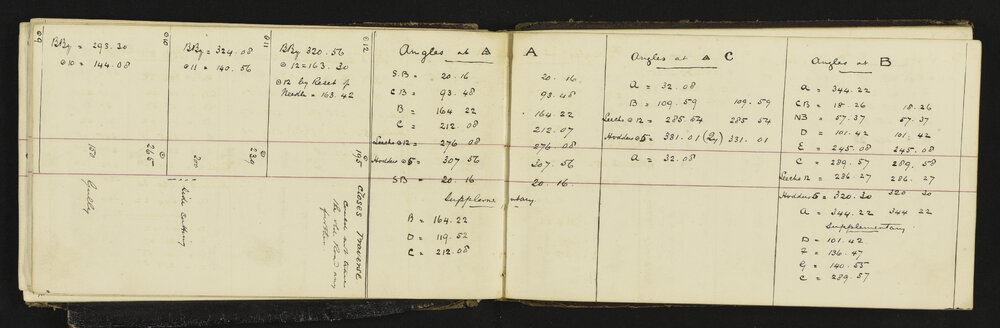 ⊙9
BBy = 293.30
⊙10 = 144.08
⊙10
BBy = 324.08
⊙11 = 140.56
⊙11
BBy 320.56
⊙12 = 163.30
⊙12 by Reset of
Needle = 163.42
⊙12
151
⊙
265
200
⊙
239
195
Gulley
Side Cutting
Closes Traverse
Could not trace
the old Road any
further
Angles at △ A
S.B = 20.16 20.16.
CB = 93.48 93.48
B = 164.22 164.22
C = 212.08 212.07
Leechs ⊙12 = 276.08 276.08
Hoddes ⊙5 = 307.56 307.56
SB = 20.16 20.16.
Supplementary.
B = 164.22
D = 119.52
C = 212.08
Angles at △ C
A = 32.08
B = 109.59 109.59
Leechs ⊙12 = 285.54 285 54
Hoddes ⊙5 = 331.01 (2y) 331.01
A = 32.08
Angles at B
A = 344.22
CB = 18.26 18.26
NB = 57.37 57.37
D = 101.42 101.42
E = 245.08 245.08
C = 289.57 289.58
Leechs 12 = 286.27 286.27
Hoddes 5 = 320.30 320 30
A = 344.22 344 22
Supplementary
D = 101.42
F = 136.47
G = 140.55
C = 289.57